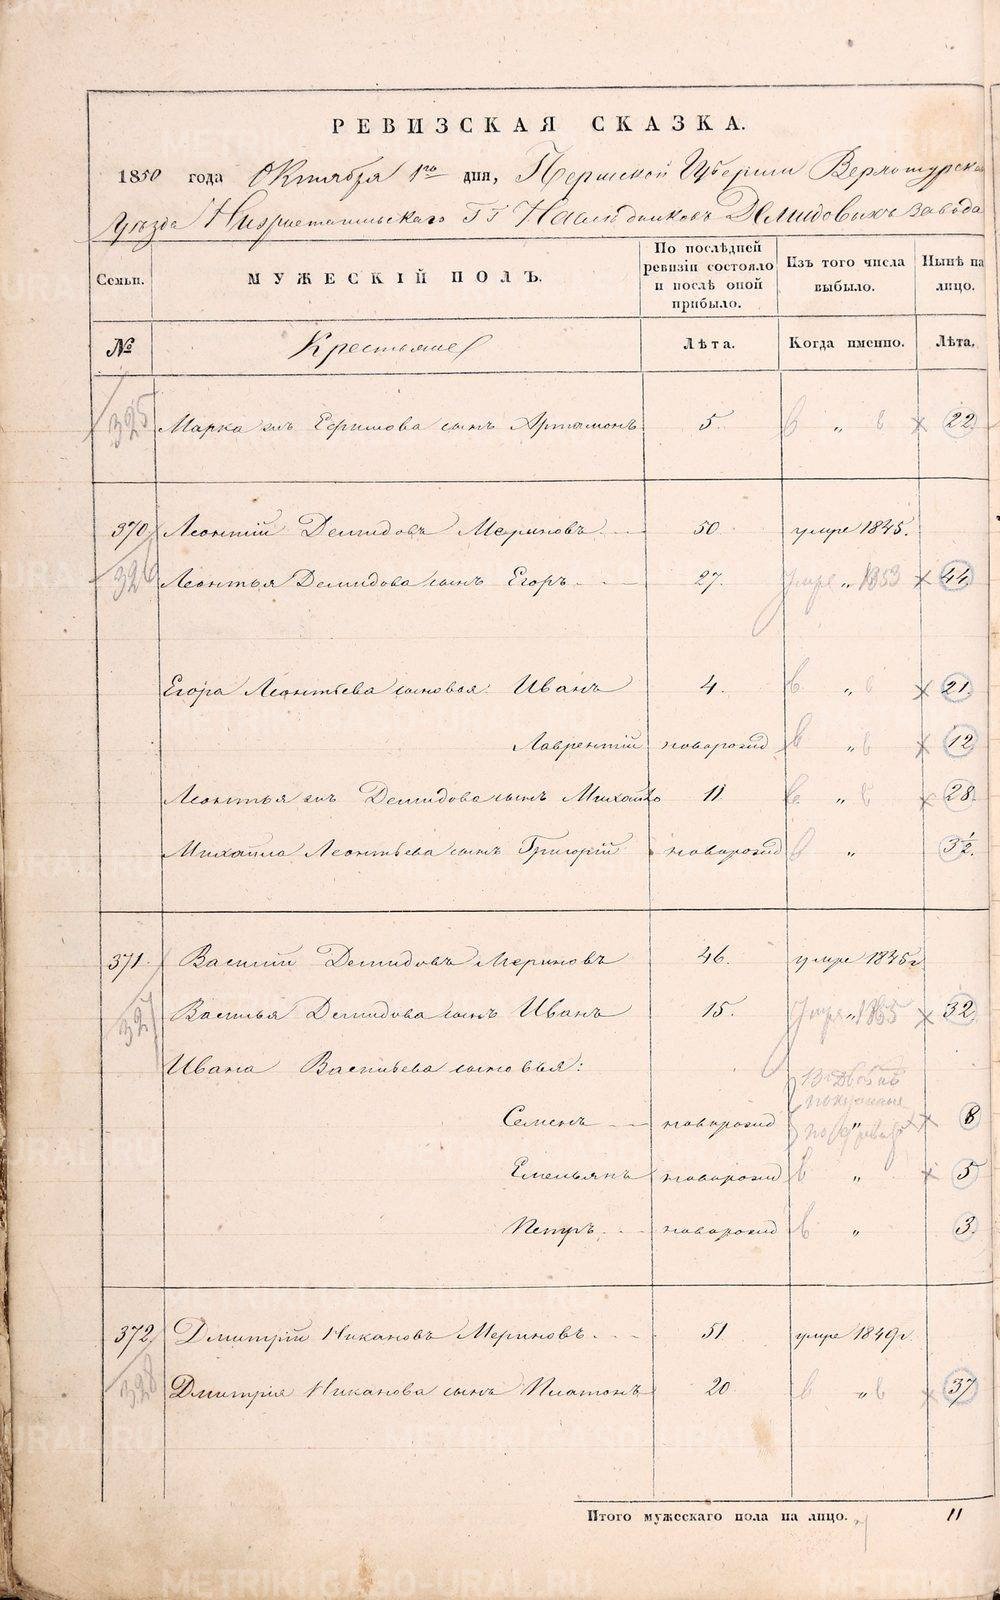 РЕВИЗСКАЯ СКАЗКА.
1850 года Октября 1го дня, Пермской Губерніи Верхотурскаго
Уѣзда Нижнетагильскаго ГГ Наслѣдниковъ Демидовыхъ завода
Семьи. МУЖЕСКІЙ ПОЛЪ. По послѣдней ревизіи состояло и послѣ оной прибыло. Изъ того числа выбыло. Нынѣ на лицо.
№ Крестьяне Лѣта. Когда именно. Лѣта.
325 Марка Ефимова сынъ Артамонъ 5. „ 22
370 Леонтій Демидовъ Мериновъ 50 умре 1845.
326 Леонтья Демидова сынъ Егоръ 27. Умре „ 1853 44
Егора Леонтьева сыновья: Иванъ 4. „ 21
Лаврентій новорожд „ 12
Леонтья Демидова сынъ Михайло 11 „ 28
Михайла Леонтьева сынъ Григорій новорожд „ 3½.
371 Василій Демидовъ Мериновъ 46. умре 1845г
327 Василья Демидова сынъ Иванъ 15. „ 1855 32
Ивана Васильева сыновья:
Семенъ новорожд „ 8
Емельянъ новорожд „ 5
Петръ новорожд „ 3.
372 Дмитрій Никановъ Мериновъ 51 умре 1849г.
328 Дмитрія Никанова сынъ Платонъ 20 „ 37
Итого мужескаго пола на лицо. 11
METRIKI.GASO-URAL.RU